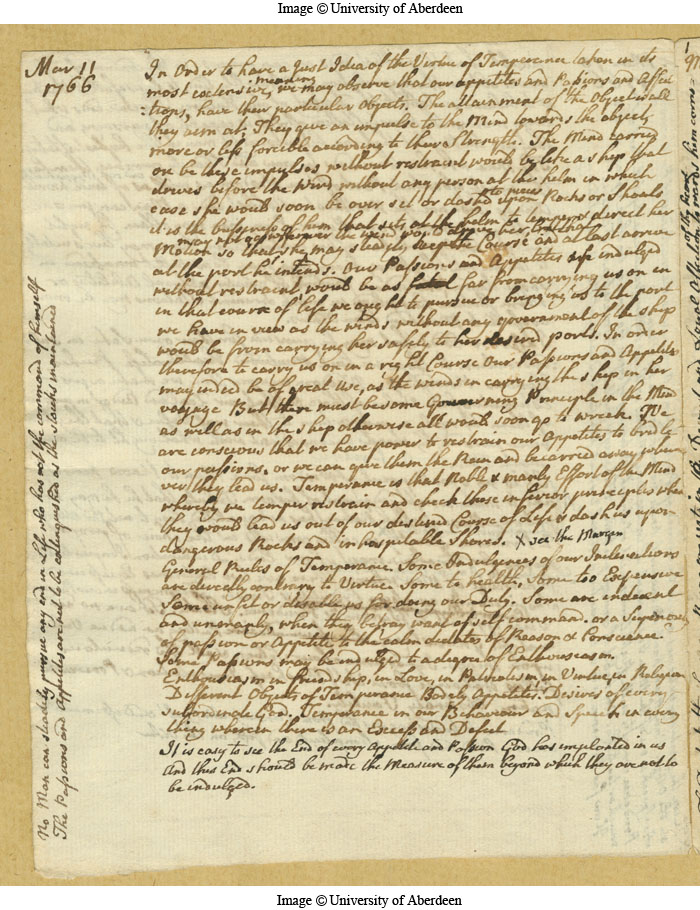 Image © University of Aberdeen
Mar 11
1766
In Order to have a Just Idea of the Virtue of Temperance taken in its
most extensive meaning, we may observe that our appetites and Passions and Affec
tions, have their particular Objects. The attainment of the Object is all
they aim at. They give an impulse to the Mind towards the object
more or less forcible according to their Strength. The Mind carried
on be these impulses without restraint would be like a ship that
drives before the Wind without any person at the helm in which
case she would soon be over set or dashed to pieces upon Rocks or Shoals
it is the bussiness of him that sits at the helm to temper & direct her
may not go wherever the wind would drive her, but that
Motion so that she may steadily keep the Course and at last arrive
at the port he intends. Our Passions and Appetites if indulged
without restraint would be as far from carrying us on in
in that course of life we ought to pursue or bringing us to the port
we have in view as the winds without any government of the ship
would be from carrying her safely to her desired port. In order
therefore to carry us on in a right Course our Passions and Appetites
may indeed be of great Use, as the winds in carrying the ship in her
voyage But there must be some Governing Principle in the Mind
as well as in the ship otherwise all would soon go to wreck. We
are conscious that we have power to restrain our Appetites to bridle
our passions, or we can give them the Rein and be carried away where
ver they lead us. Temperance is that Noble & manly Effort of the Mind
whereby we temper restrain and check those inferior principles when
they would lead us out of our destined Course of Life & dash us upon
dangerous Rocks and inhospitable Shores. X see the Margin
General Rules of Temperance. Some Indulgences of our Inclinations
are directly contrary to Virtue Some to health, Some too Expensive
Some unfit or disable us for doing our Duty. Some are indecent
and unmanly, when they betray want of self command. or a Superiority
of passion or Appetite to the calm dictates of Reason & Conscience.
Some Passions may be indulged to a degree of Enthousiasm.
Enthousiasm in friendship, in Love, in Patriotism, in Virtue, in Religion
Different Objects of Temperance Bodily Appetites. Desires of every
subordinate Good. Temperance in our Behaviour and Speech in every
thing wherein there is an Excess and Defect
It is easy to see the End of every Appetite and Passion God has implanted in us
And this End should be made the Measure of them beyond which they are not to
be indulged.
No Man can steadily pursue any end in Life who has not the command of himself
The Passions and Appetites are not to be extinguished as the Stoicks maintained
Image © University of Aberdeen